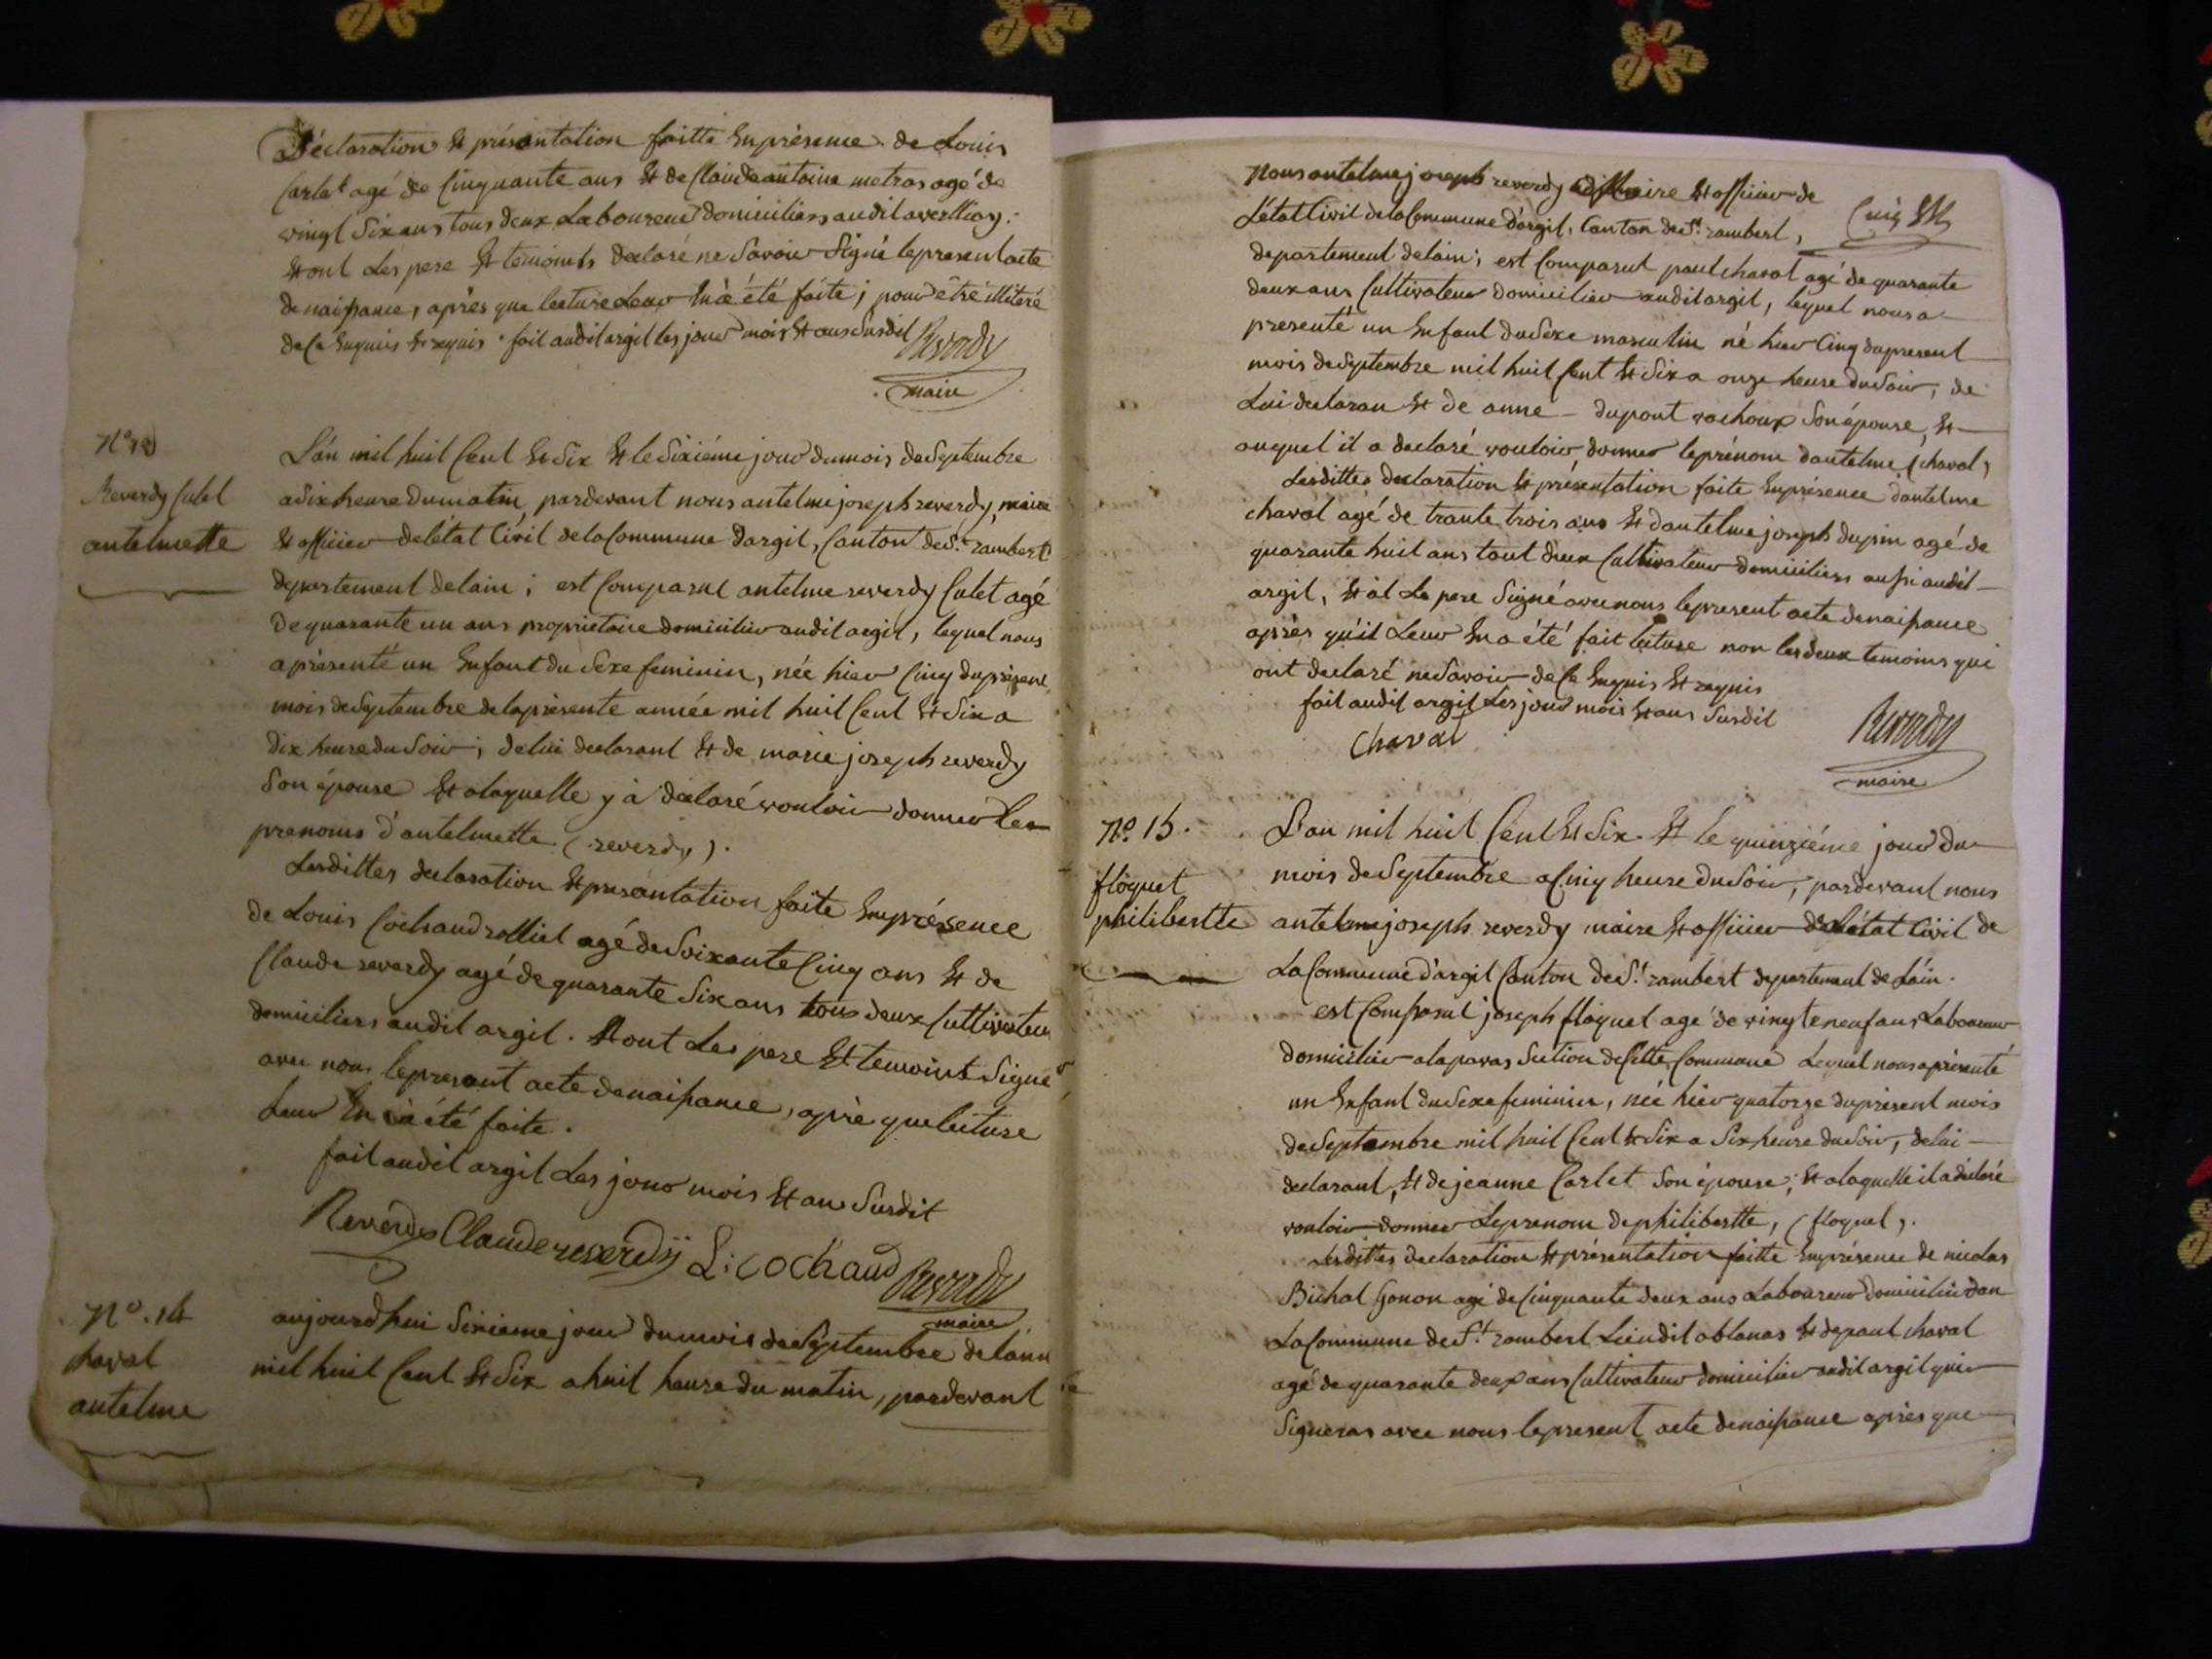 Déclaration Et présantation faitte En présence de Louis
Carlet agé de Cinquante ans Et de Claude antoine metras agé de
vingt Six ans tous deux Laboureur domiciliers audit averlliay.
Et ont Les pere Et temoints declaré ne Savoir Signé le present acte
de naissance, après que lecture Leur En a été faite; pour être illiteré
de Ce Enquis Et requis. fait audit argil les jour mois Et ans Susdit
Reverdy
maire
N° 13
Reverdy Culet
antelmette
L'an mil huit Cent Et Six Et le Sixiéme jour du mois de Septembre
a dix heure du matin, pardevant nous antelme joseph reverdy, maire
Et officier de l'état Civil de la Commune d'argil, Canton de St. rambert
departement de lain; est Comparut antelme reverdy Culet agé
de quarante un ans proprietaire domicilier audit argil, lequel nous
a présenté un Enfant du Sexe feminin, née hier Cinq du présent
mois de Septembre de la présente année mil huit Cent Et Six a
dix heure du Soir; de lui declarant Et de marie joseph reverdy
Son épouse Et a laquelle y a declaré vouloir donner Les
prenoms d'antelmette (reverdy).
Lesdittes declaration Et presantation faite En présence
de Louis Cochaud rolliet agé de Soixante Cinq ans Et de
Claude reverdy agé de quarante Six ans tous deux Cultivateur
domiciliers audit argil. Et ont Les pere Et temoints Signé
avec nous le present acte de naissance, aprè que lecture
Leur En a été faite.
fait audit argil Les jour mois Et an Susdit
Reverdy Claude reverdy L: cochaud Reverdy
maire
N°. 14
chaval
antelme
aujourdhui Sixieme jour du mois de Septembre de lann
mil huit Cent Et Six a huit heure du matin, pardevant
Nous antelme joseph reverdy maire Et officier de
L'état Civil de la Commune d'argil, Canton de St. rambert,
departement de lain; est Comparut paul chaval agé de quarante
deux ans Cultivateur domicilier audit argil, lequel nous a
presenté un Enfant du Sexe masculin né hier Cinq du present
mois de Septembre mil huit Cent Et Six a onze heure du Soir, de
Lui declaran Et de anne dupont vachoux Son épouse, Et
auquel il a declaré vouloir donner le prénom dantelme (chaval)
Lesdittes declaration Et présentation faite En présence dantelme
chaval agé de trante trois ans Et dantelme joseph dupin agé de
quarante huit ans tout deux Cultivateur domiciliers aussi audit
argil, Et at Le pere Signé avec nous le present acte de naissance
après qu'il Leur En a été fait lecture non les deux temoins qui
ont declaré ne Savoir de Ce Enquis Et requis
fait audit argil Les jour mois Et ans Susdit
Chaval
Reverdy
maire
N°. 15.
floquet
philibertte
L'an mil huit Cent Et Six. Et le quinziéme jour du
mois de Septembre a Cinq heure du Soir, pardevant nous
antelme joseph reverdy maire Et officier de létat Civil de
La Commune d'argil Canton de St. rambert departement de Lain.
est Comparut joseph floquet agé de vingt e neuf ans Laboureur
domicilier a la pavas Section de Cette Commune Lequel nous a présenté
un Enfant du Sexe feminin, née hier quatorze du présent mois
de Septembre mil huit Cent Et Six a Six heure du Soir, de lui
declarant, Et de jeanne Carlet Son épouse; Et a laquelle il a declaré
vouloir donner Le prenom de philibertte, (floquet).
Lesdittes declaration Et présentation faitte En présence de nicolas
Bichat Gonon agé de Cinquante deux ans Laboureur domicilier dan
La Commune de St. rambert Lieudit ablanas Et de paul chaval
agé de quarante deux ans Cultivateur domicilier audit argil qui
Signeras avec nous le present acte de naissance après que